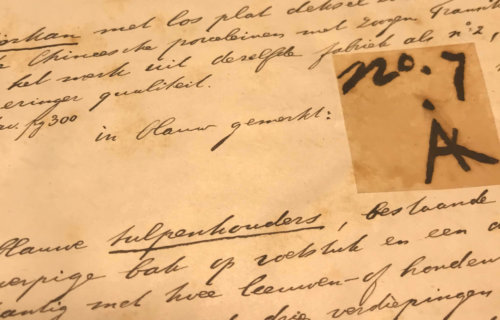 met los plat deksel
Chineesche porceleinen met zorgen
het werk uit dezelfde fabriek als no 2,
geringer qualiteit.
fg 300
in blauw gemerkt:
no. 7
AK
Blauwe tulpenhouders, bestaande
bak op voetstuk en een
met twee leeuwen- of honden
drie verdiepingen